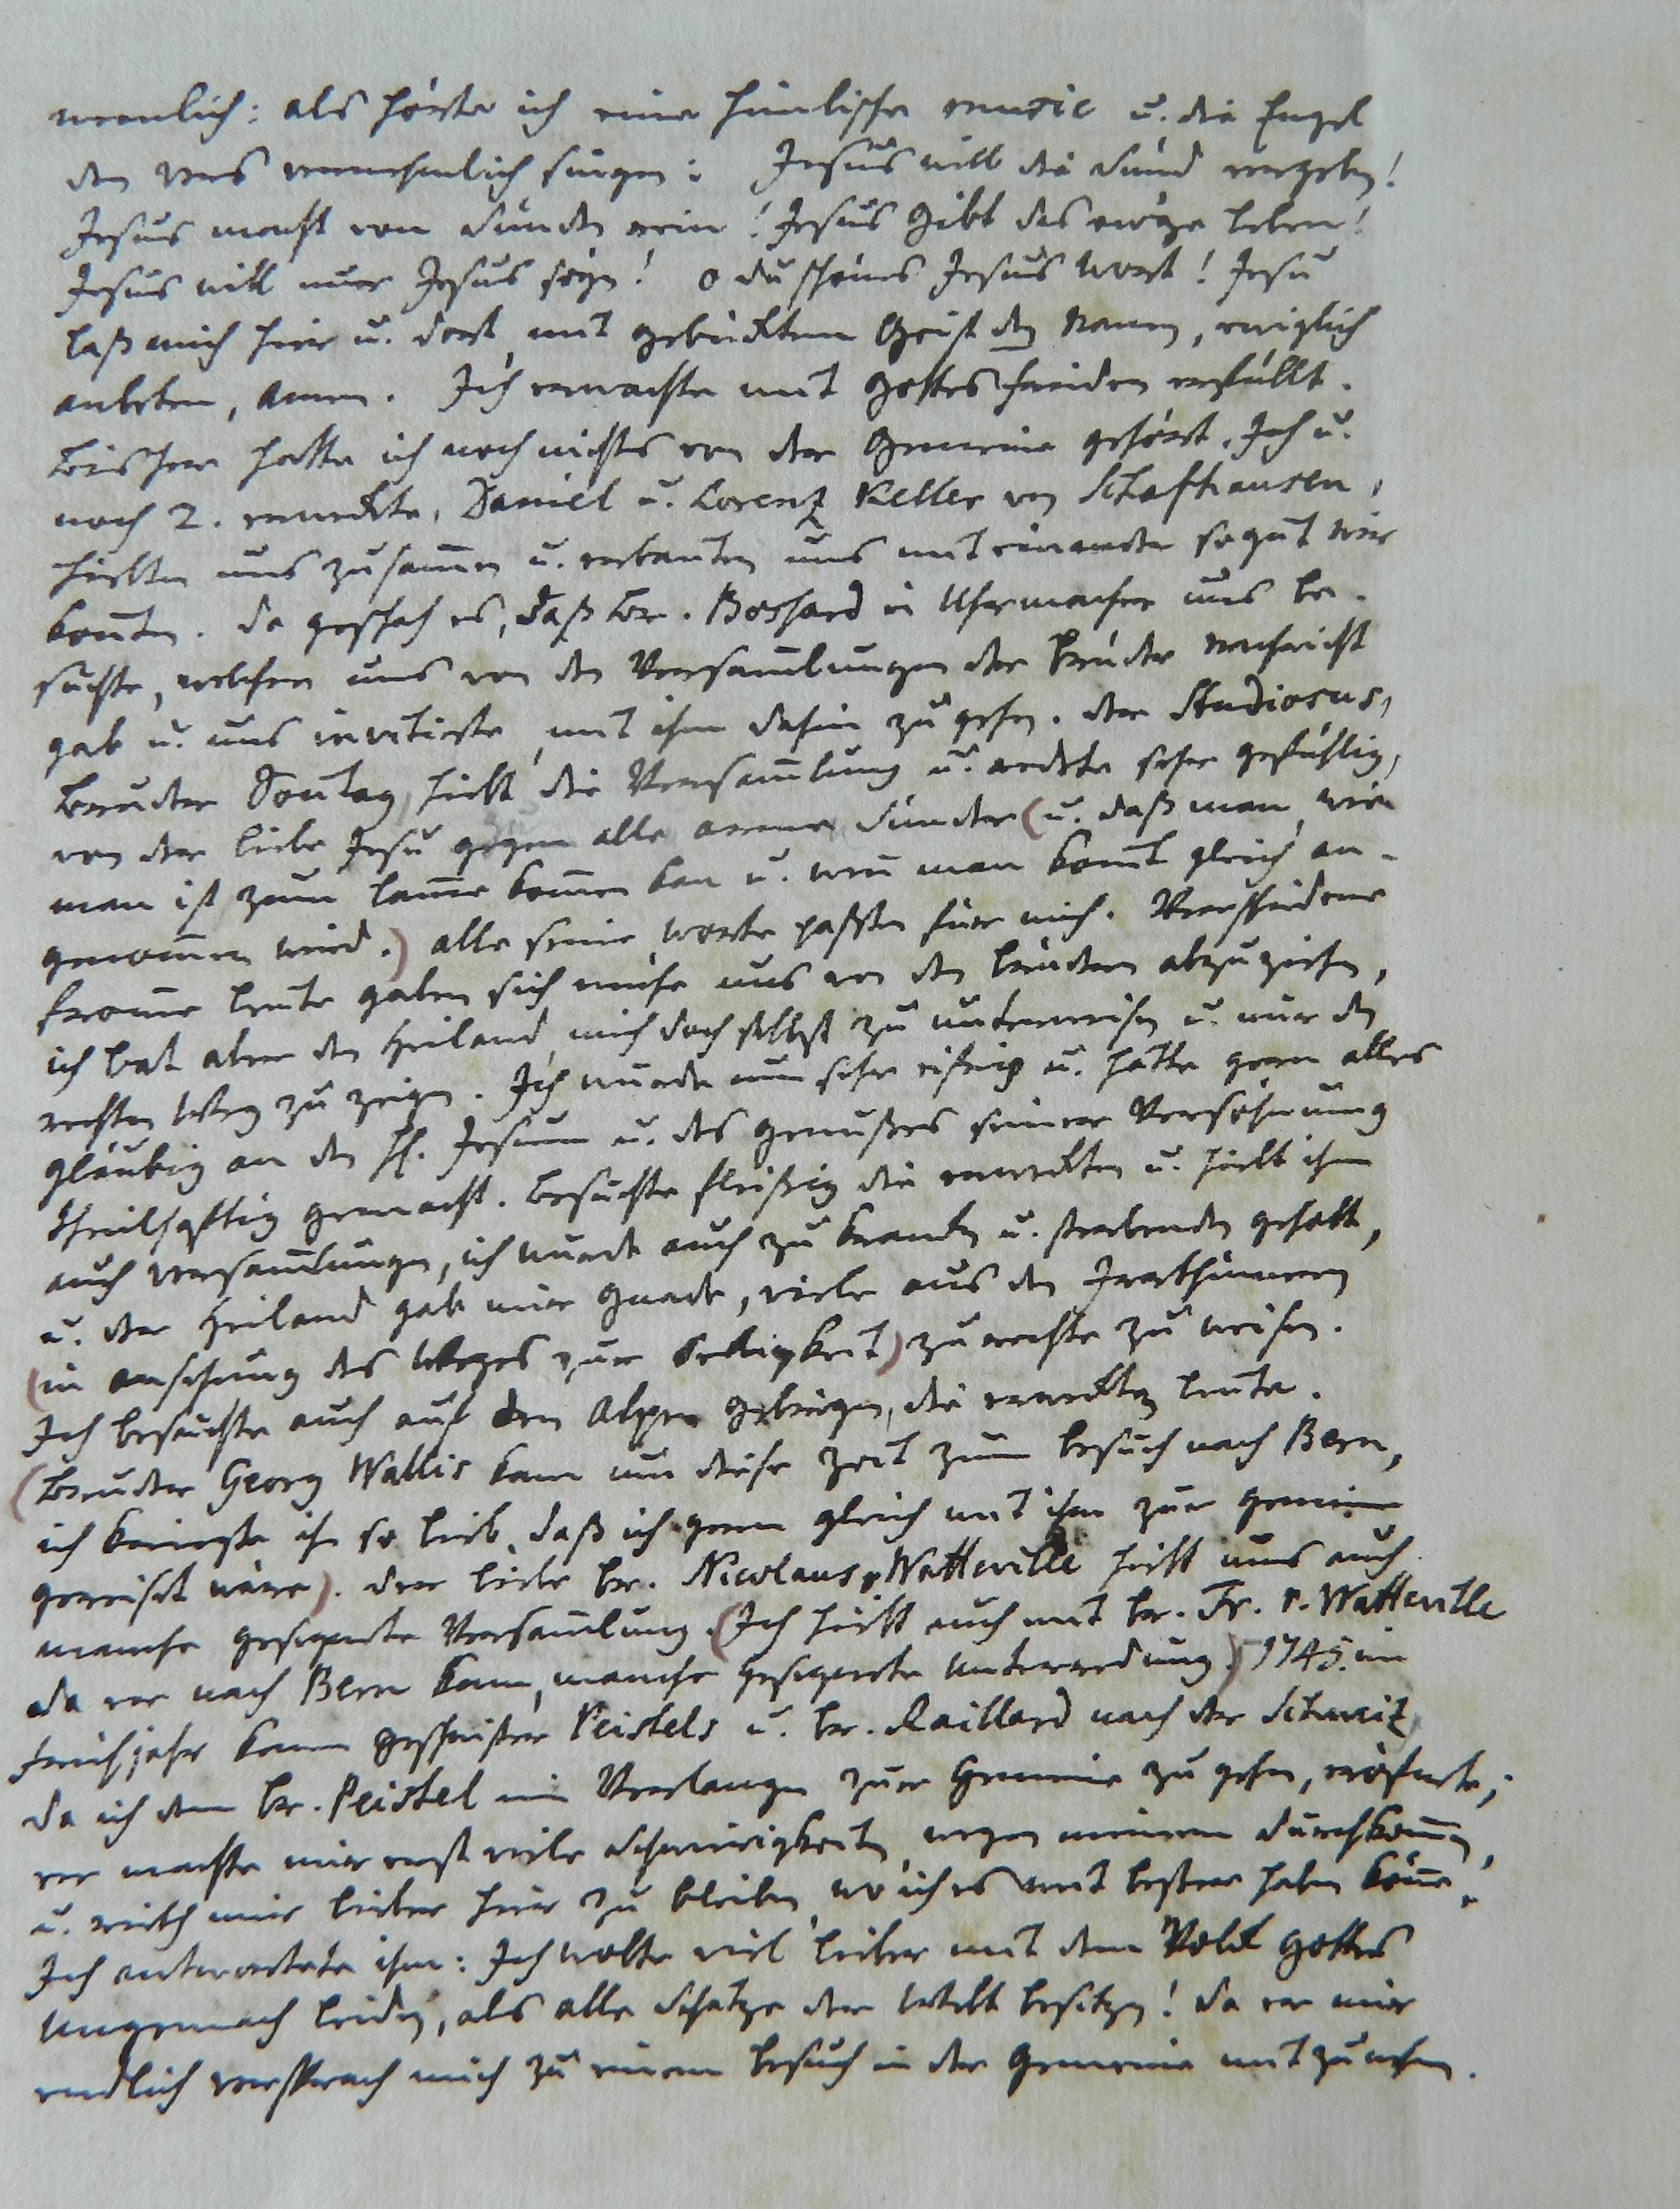 nemlich: als hörte ich eine himlische music u. die Engel
den vers vernehmlich singen: Jesus will die Sünd vergeben!
Jesus macht von Sünden rein! Jesus gibt das ewge leben!
Jesus will nur Jesus seyn! o du schönes Jesus Wort! Jesu
laß mich hier u. dort, mit gebücktem Geist den Namen, ewiglich
anbeten, amen. Ich erwachte mit Gottes frieden erfüllt.
Bisher hatte ich noch nichts von der Gemeine gehört. Ich u.
noch 2. erweckte, Daniel u. Lorentz Keller von Schafhausen,
hielten uns zusam̄en u. erbauten uns mit einander so gut wir
kon̄ten. da geschah es, daß Br. Boshard ein Uhrmacher uns be-
suchte, welcher uns von den Versam̄lungen der Brüder nachricht
gab u. uns invitirte, mit ihm dahin zu gehen. der Studiosus,
Bruder Son̄tag, hielt die Versam̄lung u. redete sehr gefühlig,
von der liebe Jesu gegen alle arme Sünder (u. daß man, wie
man ist zum lam̄e kom̄en kan u. wen̄ man kom̄t gleich an-
genom̄en wird.) alle seine worte paßten für mich. Verschiedene
from̄e leute gaben sich mühe uns von den brüdern abzuziehen,
ich bat aber den Heiland, mich doch selbst zu unterweisen u. mir den
rechten Weg zu zeigen. Ich wurde nun sehr eifrig u. hätte gern alles
gläubig an den H. Jesum u. des genußes seiner Versöhnung
theilhafftig gemacht. besuchte fleißig die erweckten u. hielt ihn
auch versam̄lungen, ich wurde auch zu kranken u. sterbenden geholt,
u. der Heiland gab mir gnade, viele aus den Irrthümern
(in ansehung des Weges zur Seeligkeit) zurechte zu weisen.
Ich besuchte auch auf den Alpen gebirgen, die erweckten leute.
(Bruder Georg Wallis kam um diese zeit zum besuch nach Bern,
ich kriegte ihn so lieb, daß ich gern gleich mit ihm zur gemeine
gereißt wäre). der liebe br. Nicolaus v. Watteville hielt uns auch
manche gesegnete Versam̄lung. (Ich hielt auch mit br. Fr. v. Watteville
da er nach Bern kam, manche gesegnete unterredung.) 1745. im
frühjahr kamen Geschwister Peistels u. br. Raillard nach der Schweitz
da ich dem br. Peistel mein Verlangen zur Gemeine zu gehen, eröfnete,
er machte mir erst viele Schwierigkeiten, wegen meinem durchkom̄en,
u. rieth mir lieber hier zu bleiben, wo ich es weit beßer haben kön̄e.
Ich antwortete ihm: Ich wolte viel lieber mit dem Volck Gottes
Ungemach leiden, als alle Schätze der Welt besitzen! da er mir
endlich versprach mich zu einem besuch in der Gemeine mitzunehmen.